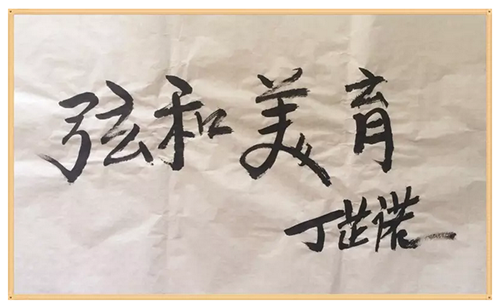 弦和美育
丁芷诺